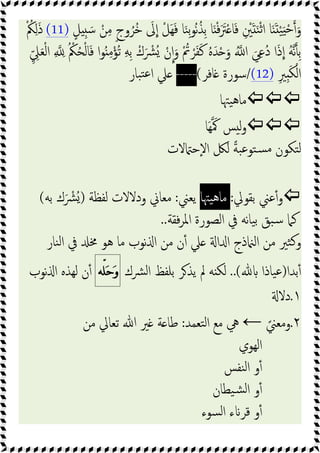 وَأَحْيَيْتَنَا اثْنَتَيْنِ فَاعْتَرَفْنَا بِذُنُوبِنَا فَهَلْ إِلَى خُرُوجٍ مِنْ سَبِيلٍ (11) ذَلِكُمْ
بِأَنَّهُ إِذَا دُعِيَ اللَّهُ وَحْدَهُ كَفَرْتُمْ وَإِنْ يُشْرَكْ بِهِ تُؤْمِنُوا فَالْحُكْمُ لِلَّهِ الْعَلِيِّ
الْكَبِيرِ (12)/سورة غافر) ----- علي اعتبار
⇦⇦⇦ماهيتها
⇦⇦⇦وليس كَمَّهَا
لتكون مستوعبةً لكل الإحتمالات
⇦وأعني بقولي: ماهيتها يعني: معاني ودلالات لفظة (يُشْرَك به)
كما سبق بيانه في الصورة المرفقة..
وكثير من النماذج الدالة علي أن من الذنوب ما هو مخلد في النار
أبدا(عياذا بالله)..) لكنه لم يذكر بلفظ الشرك وَحَلّه أن لهذه الذنوب
١.دلالة
٢.ومعنيً ← هي مع التعمد: طاعة غير الله تعالي من
الهوي
أو النفس
أو الشيطان
أو قرناء السوء